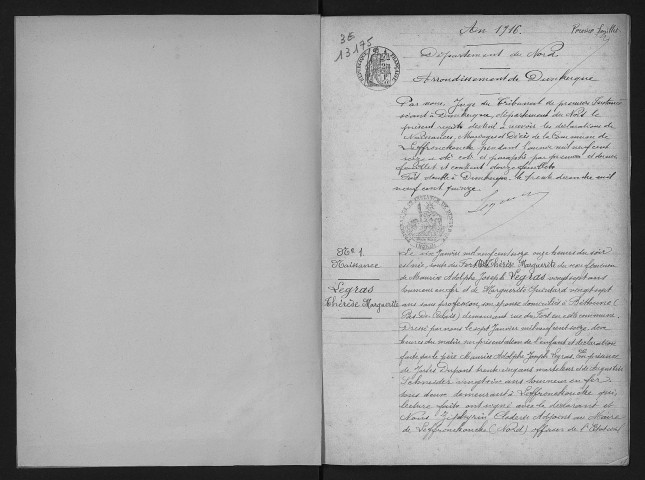 3E
13175
An 1916.
Premier feuillet
Département du Nord
Arrondissement de Dunkerque
Par nous, Juge du Tribunal de première Instance
séant à Dunkerque, département du Nord le
présent registre destiné à recevoir les déclarations de
Naissances, Mariages et Décès de la Commune de
Leffrinckoucke pendant l'année mil neuf cent
seize a été coté et paraphé par premier et dernier
feuillet et contient douze feuillets
Fait double à Dunkerque, le trente décembre mil
neuf cent quinze.
N° 1.
Naissance
Legras
Thérèse Marguerite
Le six Janvier mil neuf cent seize onze heures du soir
est née, route du Fort Thérèse Marguerite du sexe féminin
de Maurice Adolphe Joseph Legras vingt sept ans
tourneur en fer et de Marguerite vingt sept
ans sans profession, son épouse domiciliés à Béthune (
Pas-de-Calais) demeurant rue du Fort en cette commune.
Dressé par nous le sept Janvier mil neuf cent seize
heures du matin sur présentation de l'enfant et déclaration
faite par le père Maurice Adolphe Joseph Legras. En présence
de Jules Dupont trente cinq ans marteleur et de Augustin
Schneider vingt trois ans tourneur en fer
tous deux demeurant à Leffrinckoucke qui,
lecture faite ont signé avec le déclarant et
Nous Zéphyrin Adjoint au Maire
de Leffrinckoucke (Nord) officier de l'Etat civil